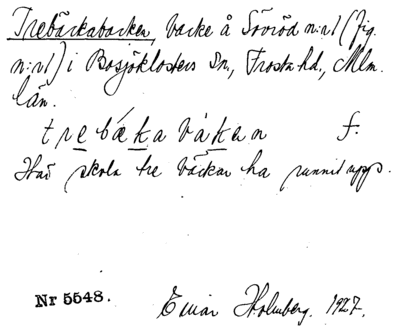 Trebäckabacken, backe å Sövröd n:r1 (fig.
n:r1) i Bosjöklosters Sn, Frosta hd., Mlm.
län.
trebækabakan f.
Här skola tre bäckar ha runnit upp.
Nr 5548.
Einar Holmberg. 1927.